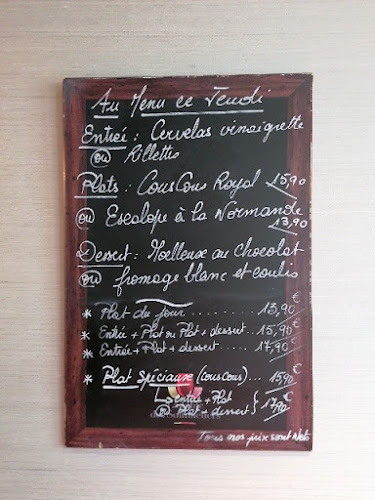 Au Menu ce Jeudi
Entrée : Cervelas vinaigrette
ou Rillettes
Plats : CousCous Royal 15,90
ou Escalope à la Normande
13,90
Dessert : Moelleux au Chocolat
ou fromage blanc et coulis
* Plat du jour ........... 13,90 €
* Entrée + Plat ou Plat + dessert .... 15,90 €
* Entrée + Plat + dessert ....... 17,90 €
* Plat Spéciaux (couscous) ... 15,90 €
entrée + Plat
ou Plat + dessert } 17,90 €
Tous nos prix sont Nets